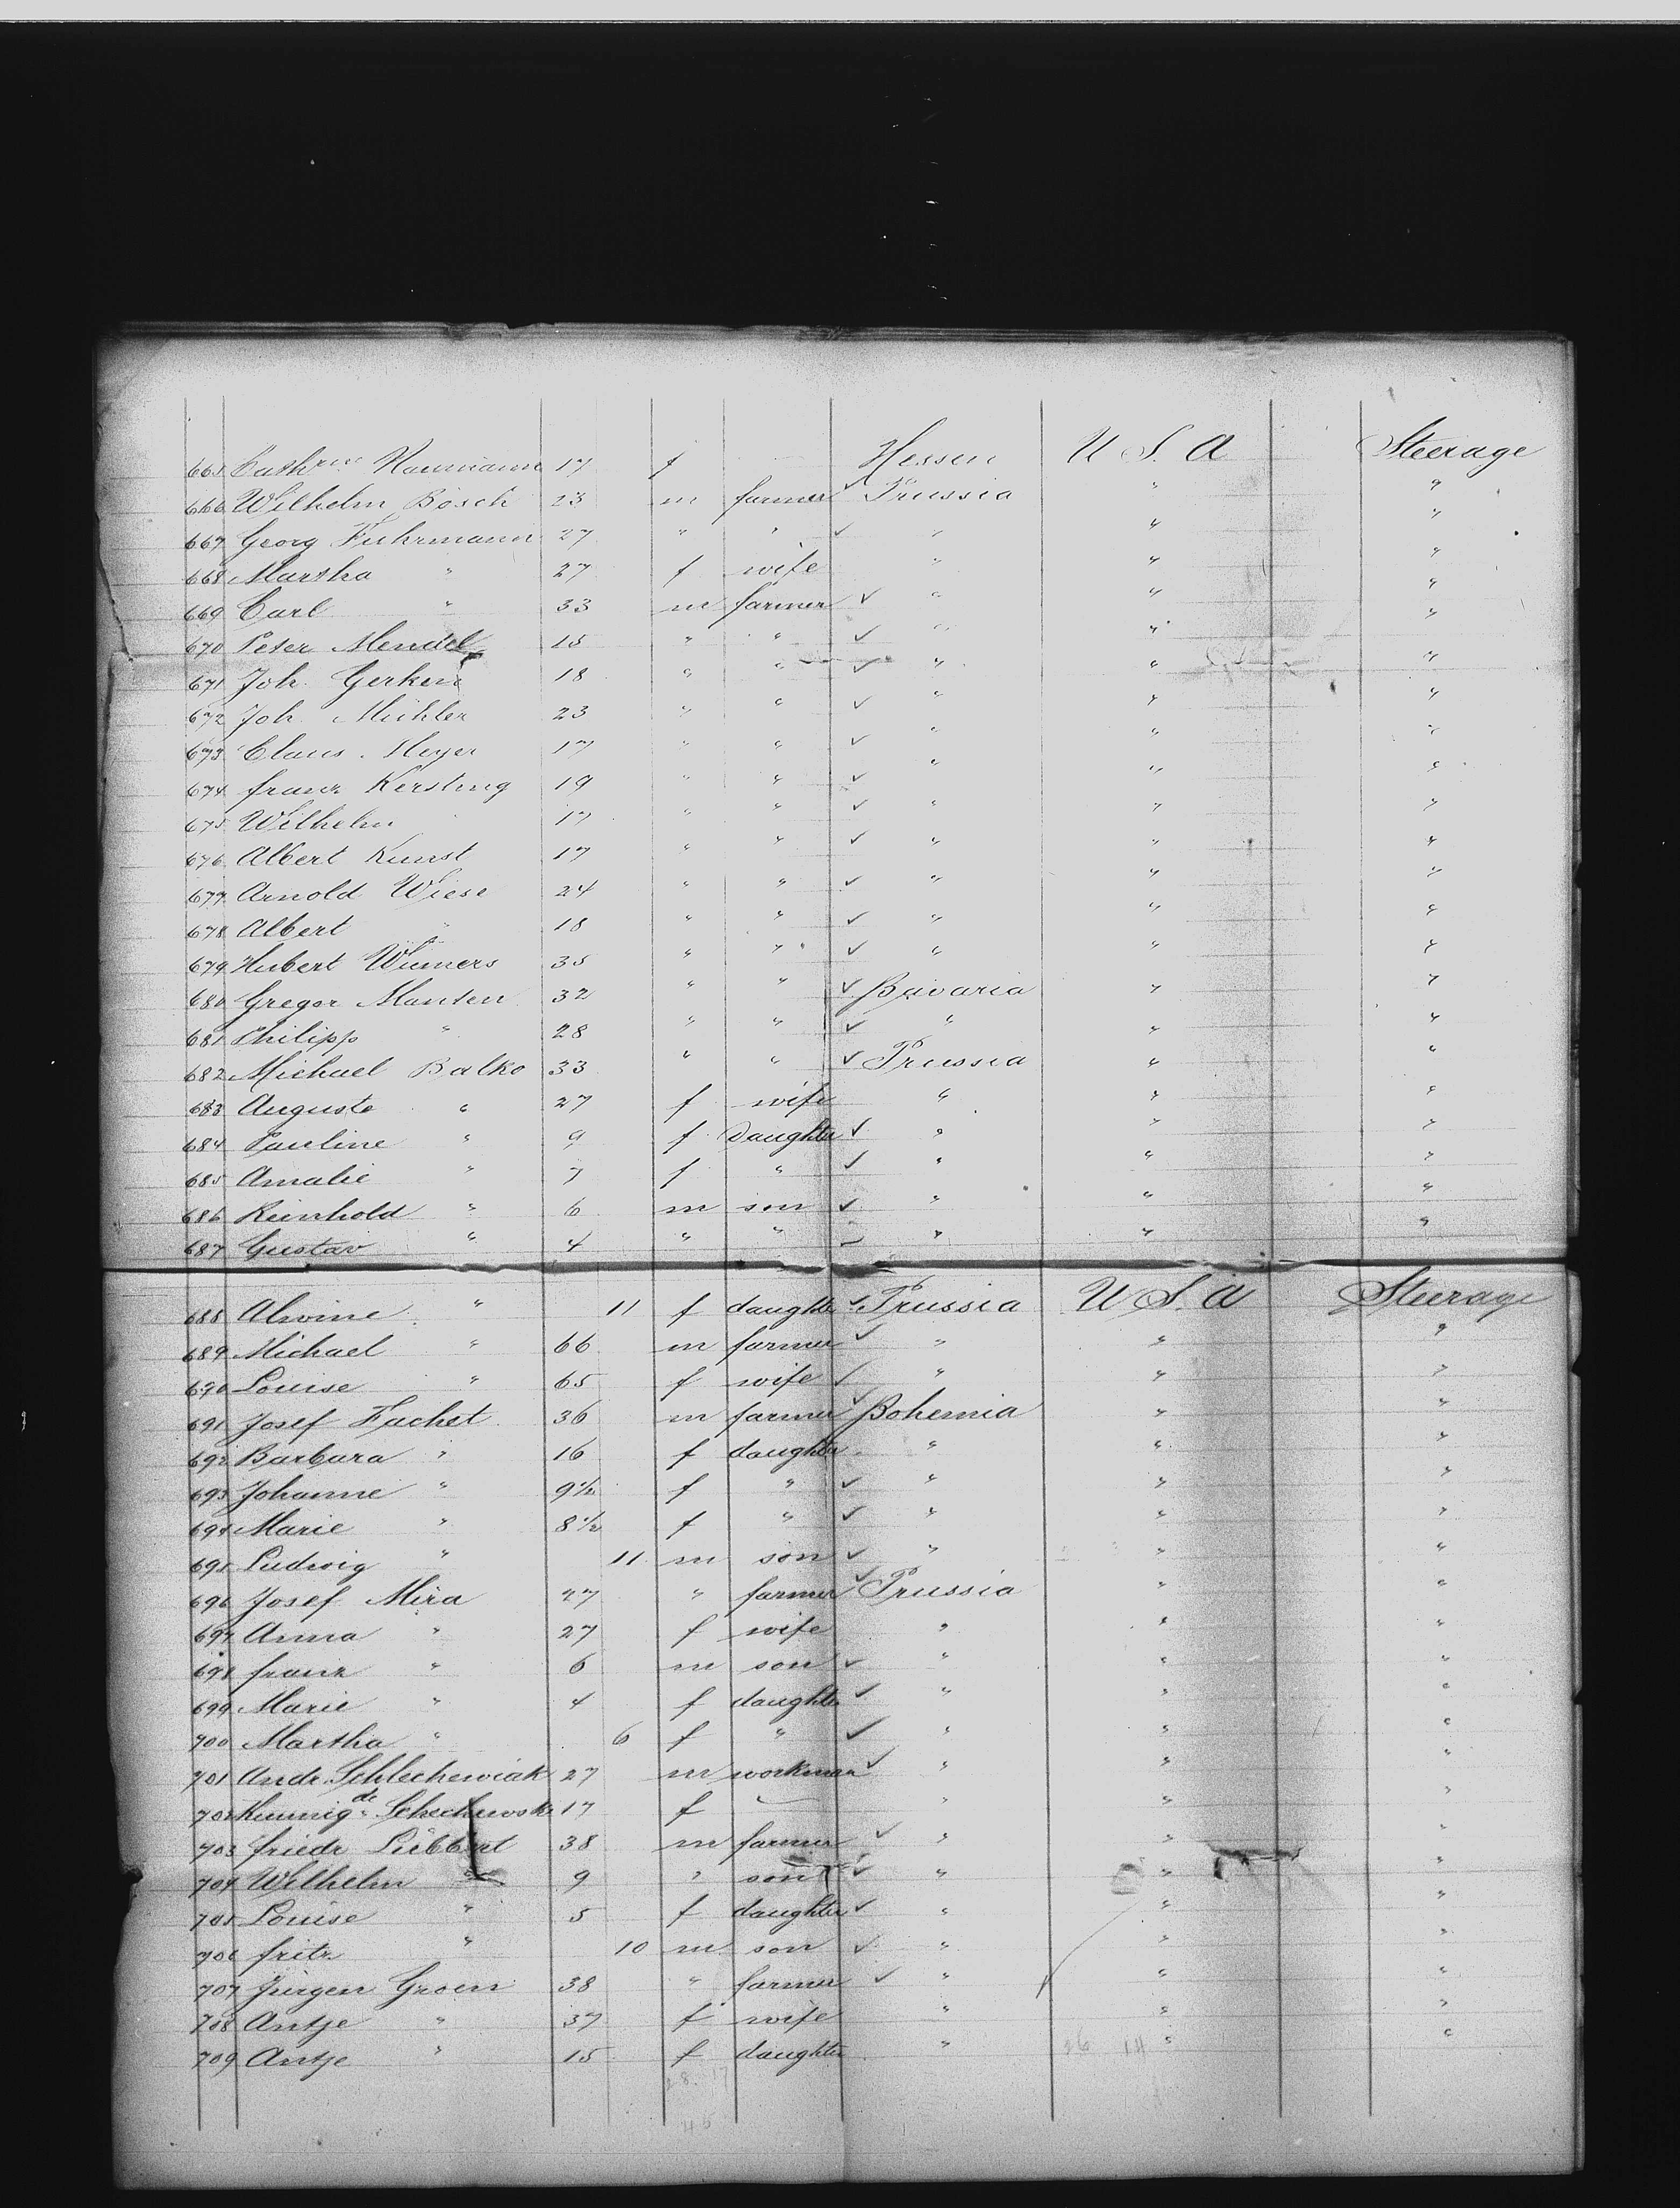 665 Cathrne Naumann 17 f Hessen U S. A Steerage
666 Wilhelm Bosch 23 m farmer ✓ Prussia " "
667 Georg Fuhrmann 27 " " ✓ " " "
668 Martha " 27 f wife " " "
669 Carl " 33 m farmer ✓ " " "
670 Peter Mendel 15 " " ✓ " " "
671 Joh. Gerken 18 " " ✓ " " "
672 Joh. Mühler 23 " " ✓ " " "
673 Claus Meyer 17 " " ✓ " " "
674 franz Kersting 19 " " ✓ " " "
675 Wilhelm " 17 " " ✓ " " "
676 Albert Kunst 17 " " ✓ " " "
677 Arnold Wiese 24 " " ✓ " " "
678 Albert " 18 " " ✓ " " "
679 Hubert Wümers 35 " " ✓ " " "
680 Gregor Manten 32 " " ✓ Bavaria " "
681 Philipp " 28 " " ✓ " " "
682 Michael Balko 33 " " ✓ Prussia " "
683 Auguste " 27 f wife " " "
684 Pauline " 9 f daughter ✓ " " "
685 Amalie " 7 f " ✓ " " "
686 Reinhold " 6 m son ✓ " " "
687 Gustav " 4 " " " " "
688 Alwine " 11 f daughter ✓ Prussia U S. A Steerage
689 Michael " 66 m farmer ✓ " " "
690 Louise " 65 f wife ✓ " " "
691 Josef Fuchet 36 m farmer ✓ Bohemia " "
692 Barbara " 16 f daughter " " "
693 Johanne " 9½ f " ✓ " " "
694 Marie " 8½ f " ✓ " " "
695 Ludwig " 11 m son ✓ " " "
696 Josef Mira 27 " farmer ✓ Prussia " "
697 Anna " 27 f wife " " "
698 franz " 6 m son ✓ " " "
699 Marie " 4 f daughter ✓ " " "
700 Martha " 6 f " ✓ " " "
701 Andr. Schlechewiak 27 m workman ✓ " " "
702 17 f — " " "
703 friedr Lübbert 38 m farmer ✓ " " "
704 Wilhelm " 9 " son ✓ " " "
705 Louise " 5 f daughter ✓ " " "
706 fritz " 10 m son ✓ " " "
707 Jürgen Groen 38 " farmer ✓ " " "
708 Antje " 37 f wife " " "
709 Antje " 15 f daughter " " "